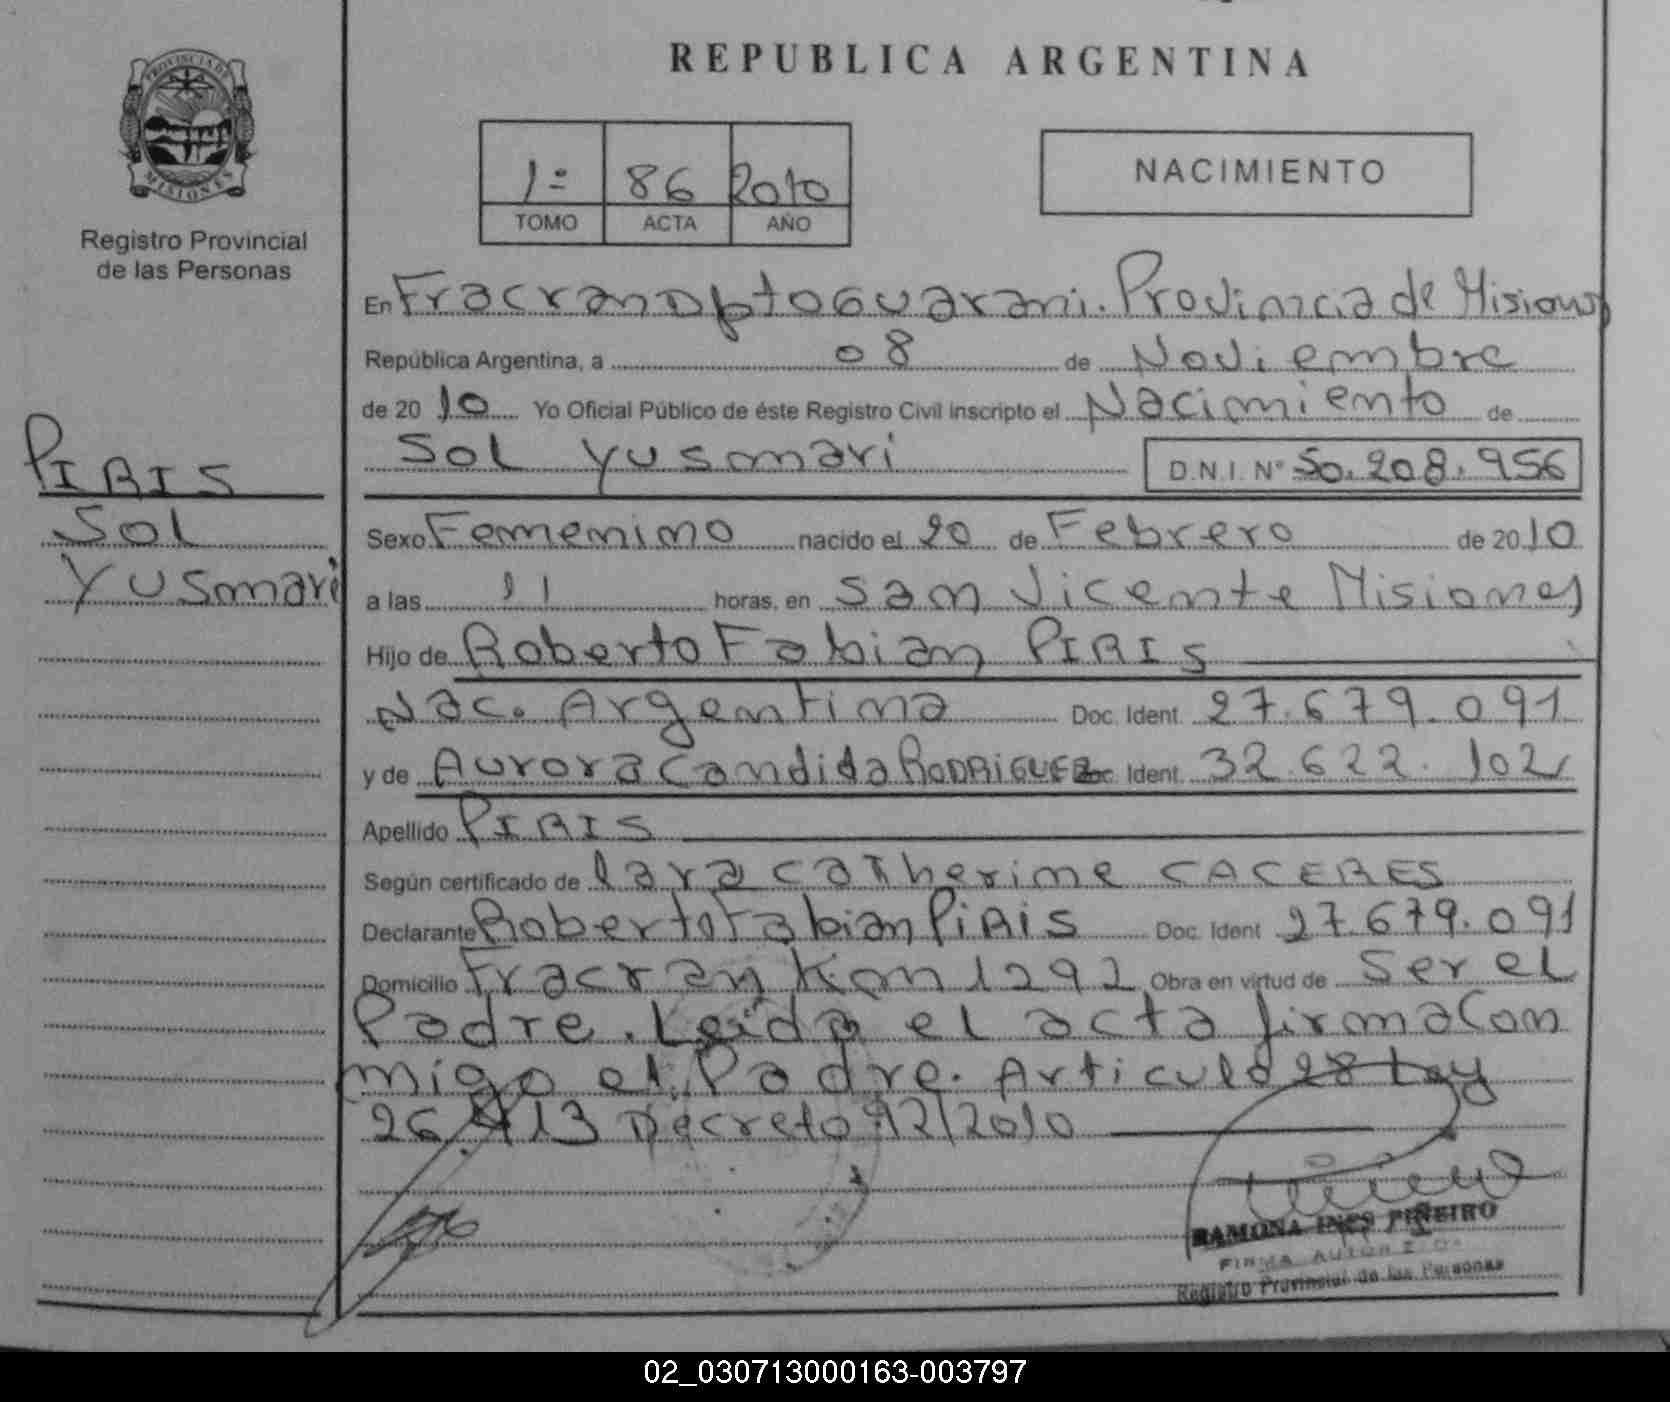 REPUBLICA ARGENTINA
PROVINCIA DE
MISIONES
Registro Provincial
de las Personas
1º 86 2010
TOMO ACTA AÑO
NACIMIENTO
En Fracran Dpto Guarani. Provincia de Misiones
República Argentina, a 08 de Noviembre
de 2010 Yo Oficial Público de éste Registro Civil inscripto el Nacimiento de
Sol Yusmari D.N.I. Nº 50.208.956
PIRIS
Sol
Yusmari
Sexo Femenino nacido el 20 de Febrero de 2010
a las 11 horas, en San Vicente Misiones
Hijo de Roberto Fabian PIRIS
Nac. Argentina Doc. Ident. 27.679.091
y de Aurora Candida RODRIGUEZ Doc. Ident. 32.622.102
Apellido PIRIS
Según certificado de lara catherine CACERES
Declarante Roberto Fabian PIRIS Doc. Ident 27.679.091
Domicilio Fracran Km 1292 Obra en virtud de Ser el
Padre. Leida el acta firma con
migo el Padre. Articulo 28 Ley
26 413 Decreto 92/2010
RAMONA INES PIÑEIRO
FIRMA AUTORIZADA
Registro Provincial de las Personas
02_030713000163-003797